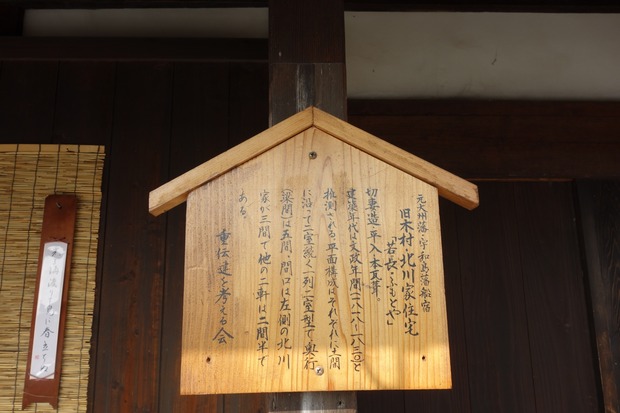 元大州藩・宇和島藩船宿
旧木村、北川家住宅
「若長・ふじや」
切妻造・平入・本瓦葺
建築年代は文政年間(一八一八〜一八三〇)と
推測される。平面構成はそれぞれに土間
に沿って二室続く一列二室型で、奥行
(梁間)は五間、間口は左側の北川
家が三間で他の二軒は二間半で
ある。
重伝建を考える会